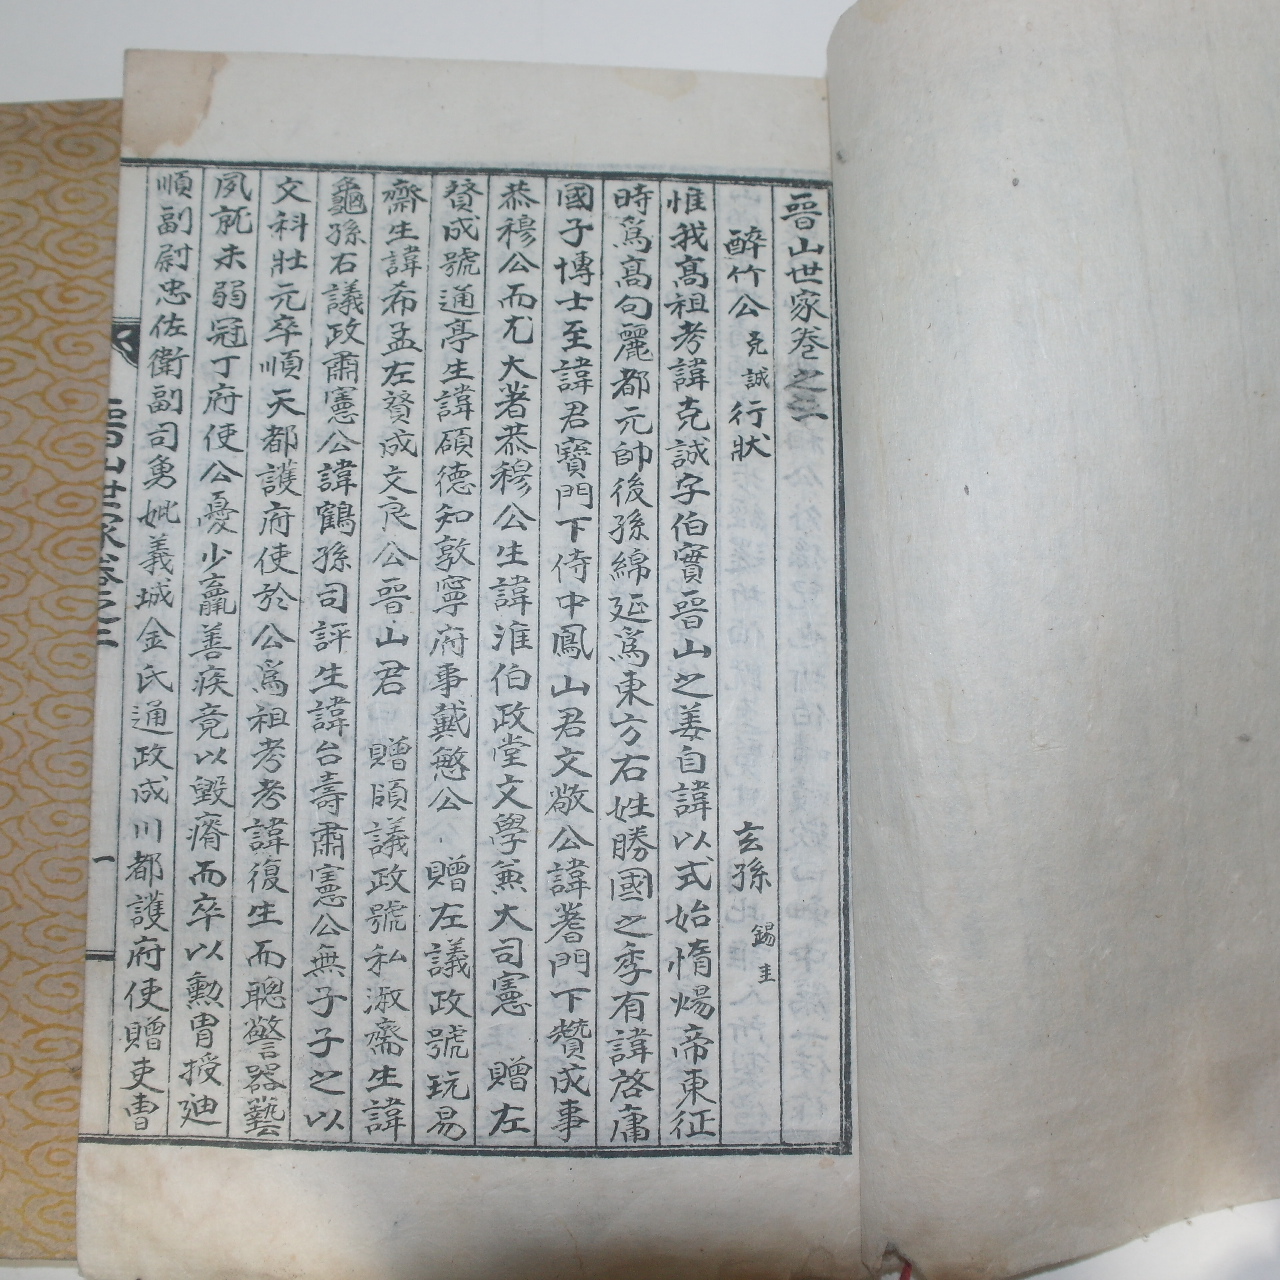 晋山世家卷之三
醉竹公克誠行狀 玄孫錫圭
惟我高祖考諱克誠字伯實晋山之姜自諱以式始惰煬帝東征
時爲高句麗都元帥後孫綿延爲東方右姓勝國之季有諱啓庸
國子博士至諱君寶門下侍中鳳山君文敬公諱蓍門下贊成事
恭穆公而尤大著恭穆公生諱淮伯政堂文學兼大司憲 贈左
贊成號通亭生諱碩德知敦寧府事戴慜公 贈左議政號玩易
齋生諱希孟左贊成文良公晋山君 贈領議政號私淑齋生諱
龜孫右議政肅憲公諱鶴孫司評生諱台壽肅憲公無子子之以
文科壯元卒順天都護府使於公爲祖考考諱復生而聰警器藝
夙就未弱冠丁府使公憂少羸善疾竟以毁瘠而卒以勳胄授迪
順副尉忠佐衛副司勇妣義城金氏通政成川都護府使贈吏曹
晋山世家卷之三 一